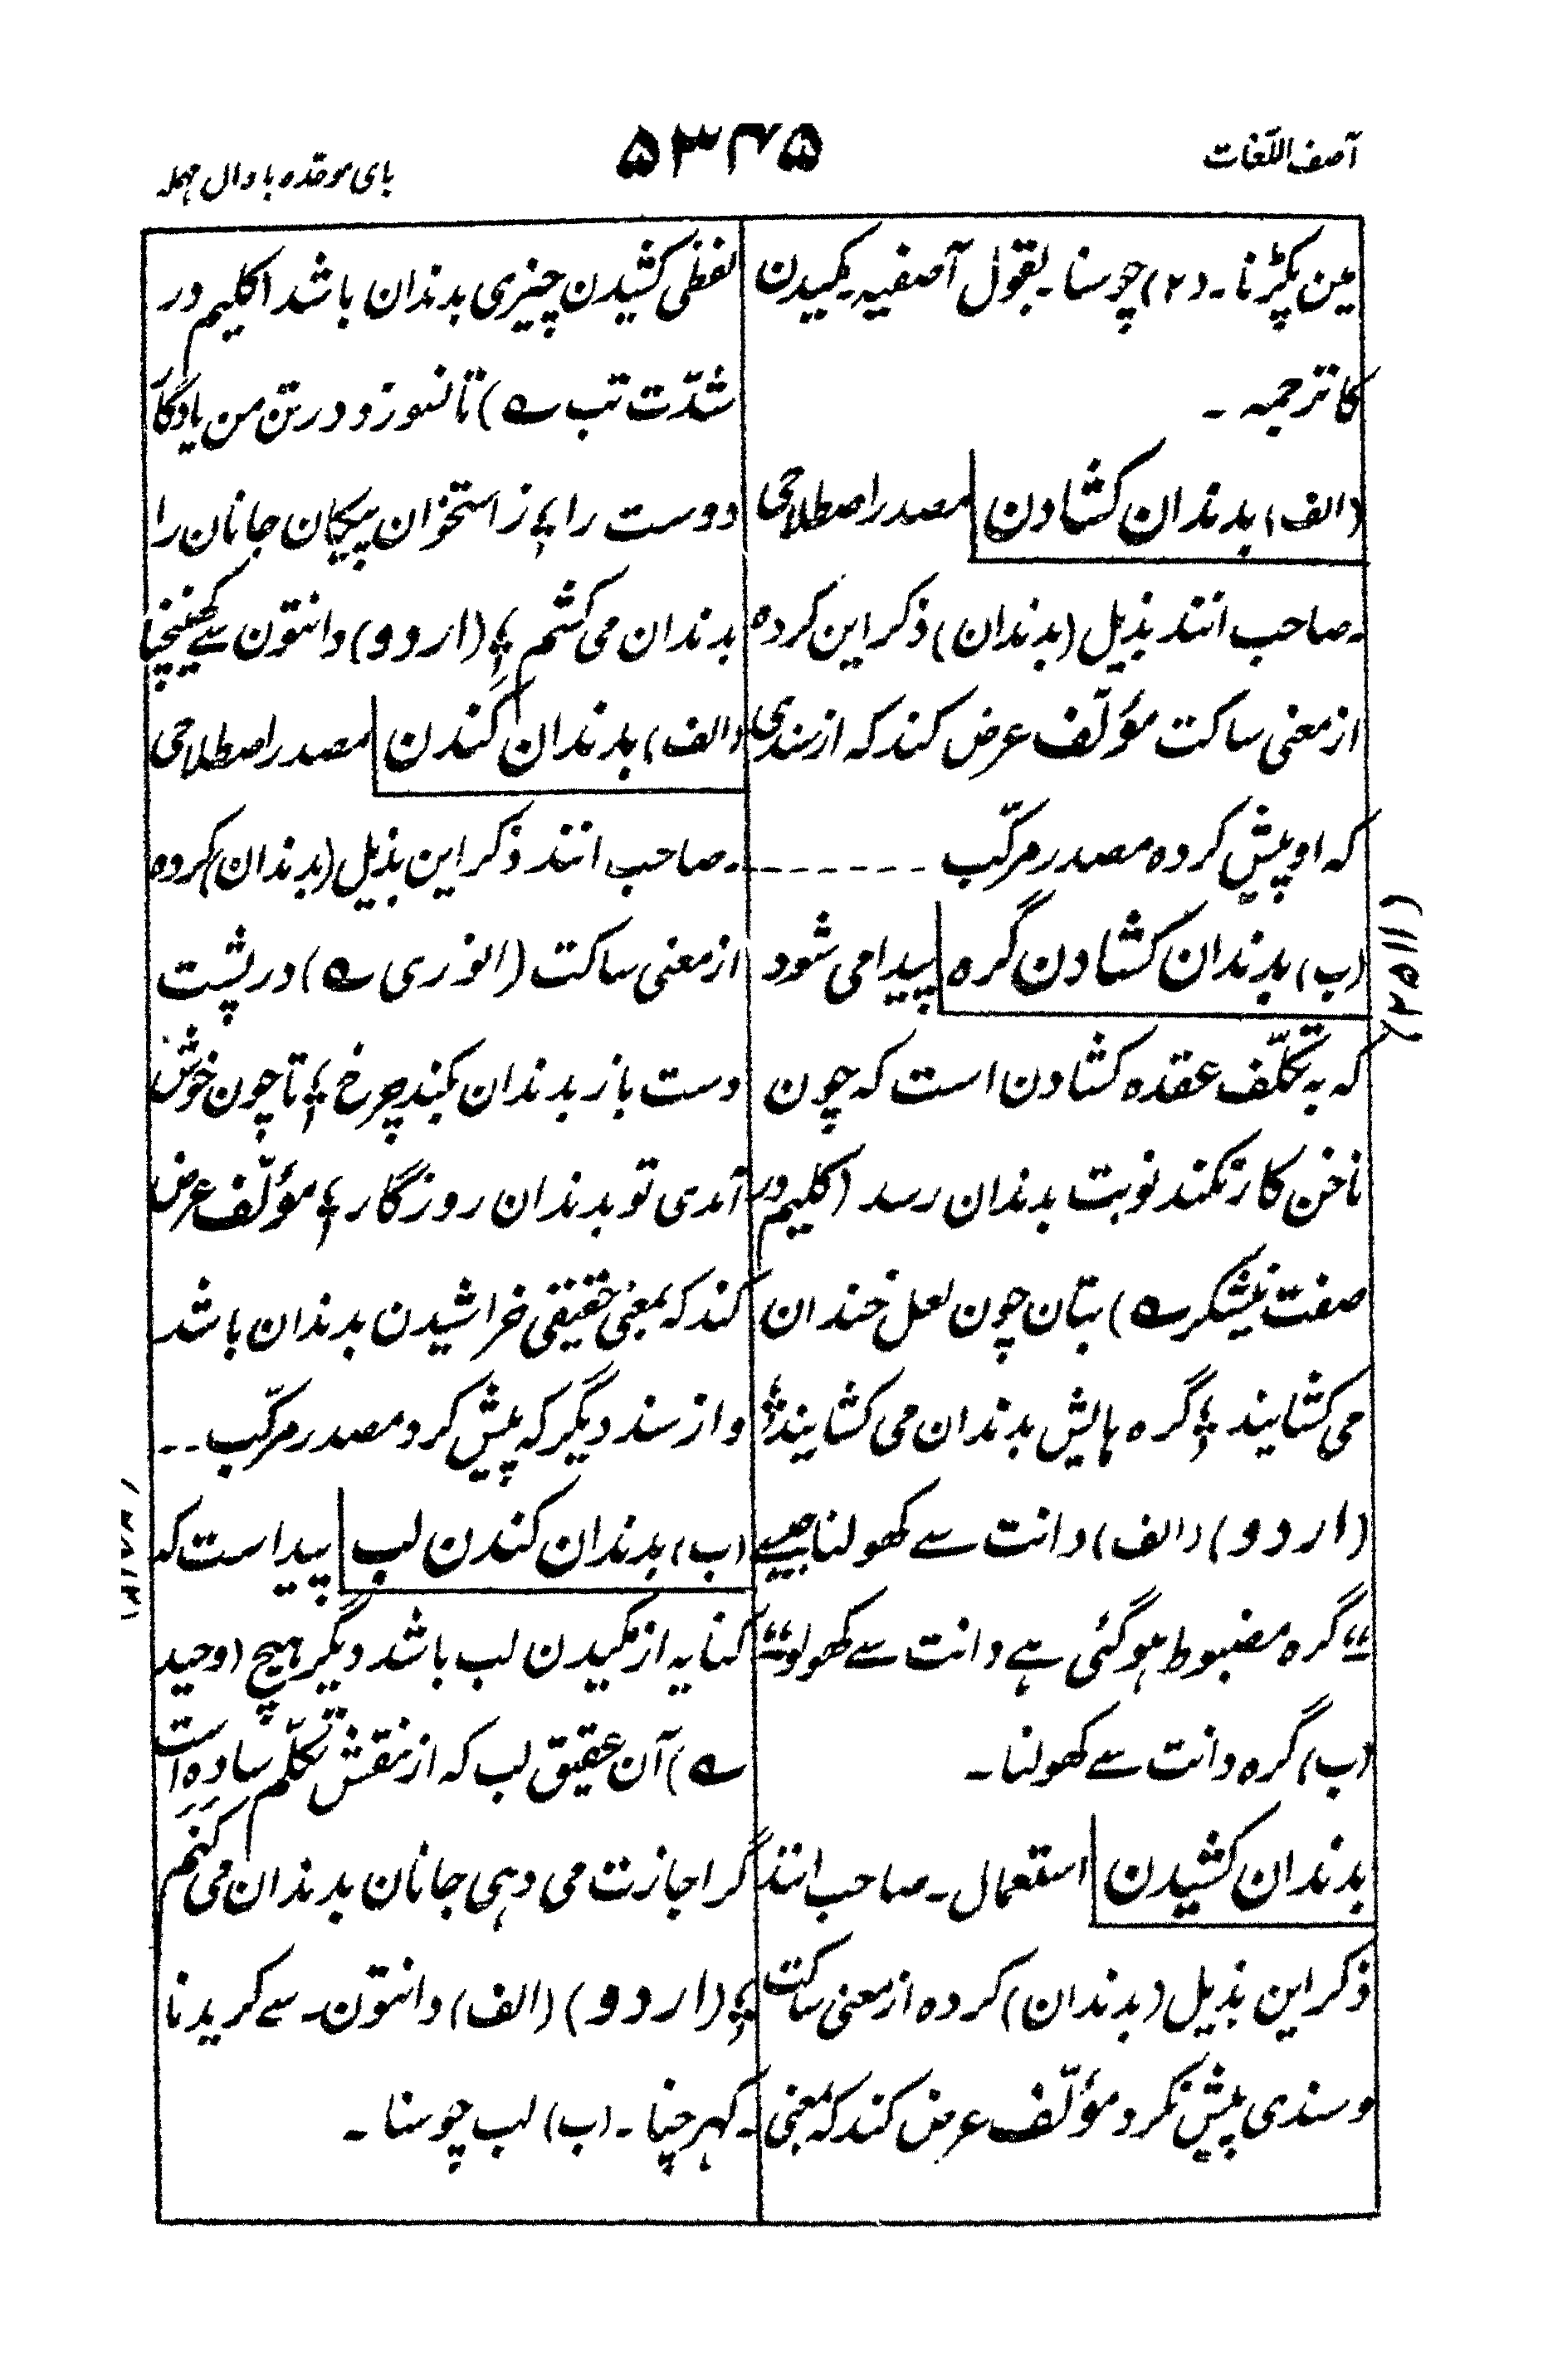 آصف اللّغات
۵۳۴۵
بای موحّده با دال مہملہ
مین پکڑنا۔ (۲) چوسنا۔ بقول آصفیہ۔ مکیدن
کا ترجمہ ۔
(الف) بدندان کشادن مصدر اصطلاحی
۔صاحب انند بذیل (بدندان) ذکر این کردہ
از معنی ساکت مؤلّف عرض کند کہ از سندی
کہ او پیش کردہ مصدر مرکّب - - - - - - -
(ب) بدندان کشادن گرہ پیدا می شود
کہ بہ تکلّف عقدہ کشادن است کہ چون
ناخن کار نکند نوبت بدندان رسد (کلیم در
صفت نیشکر ے) بتان چون لعل خندان
می کشایند ؛ گرہ ہایش بدندان می کشایند ؛
(اردو) (الف) دانت سے کھولنا جیسے
”گرہ مضبوط ہو گئی ہے دانت سے کھولو“
(ب) گرہ دانت سے کھولنا ۔
بدندان کشیدن استعمال ۔ صاحب انند
ذکر این بذیل (بدندان) کردہ از معنی ساکت
و سندی پیش نکرد مؤلّف عرض کند کہ بمعنی
لفظی کشیدن چیزی بدندان باشد (کلیم در
شدّت تب ے) تا نسوزد در تن من یادگار
دوست را ؛ ز استخوان پیکان جانان را
بدندان می کشم ؛ (اردو) دانتون سے کھینچنا
(الف) بدندان کندن مصدر اصطلاحی
۔صاحب انند ذکر این بذیل (بدندان) کردہ
از معنی ساکت (انوری ے) در پشت
دست باز بدندان بکند چرخ ؛ تا چون خوش
آمدی تو بدندان روزگار ؛ مؤلّف عرض
کند کہ بمعنی حقیقی خراشیدن بدندان باشد
و از سند دیگر کہ پیش کرد مصدر مرکّب - -
(ب) بدندان کندن لب پیدا است کہ
کنایہ از مکیدن لب باشد دیگر ہیچ (وحید
ے) آن عقیق لب کہ از نقش تکلّم سادہ است
گر اجازت می دہی جانان بدندان می کنم
؛ (اردو) (الف) دانتون۔ سے کریدنا
۔کہرچنا ۔ (ب) لب چوسنا ۔